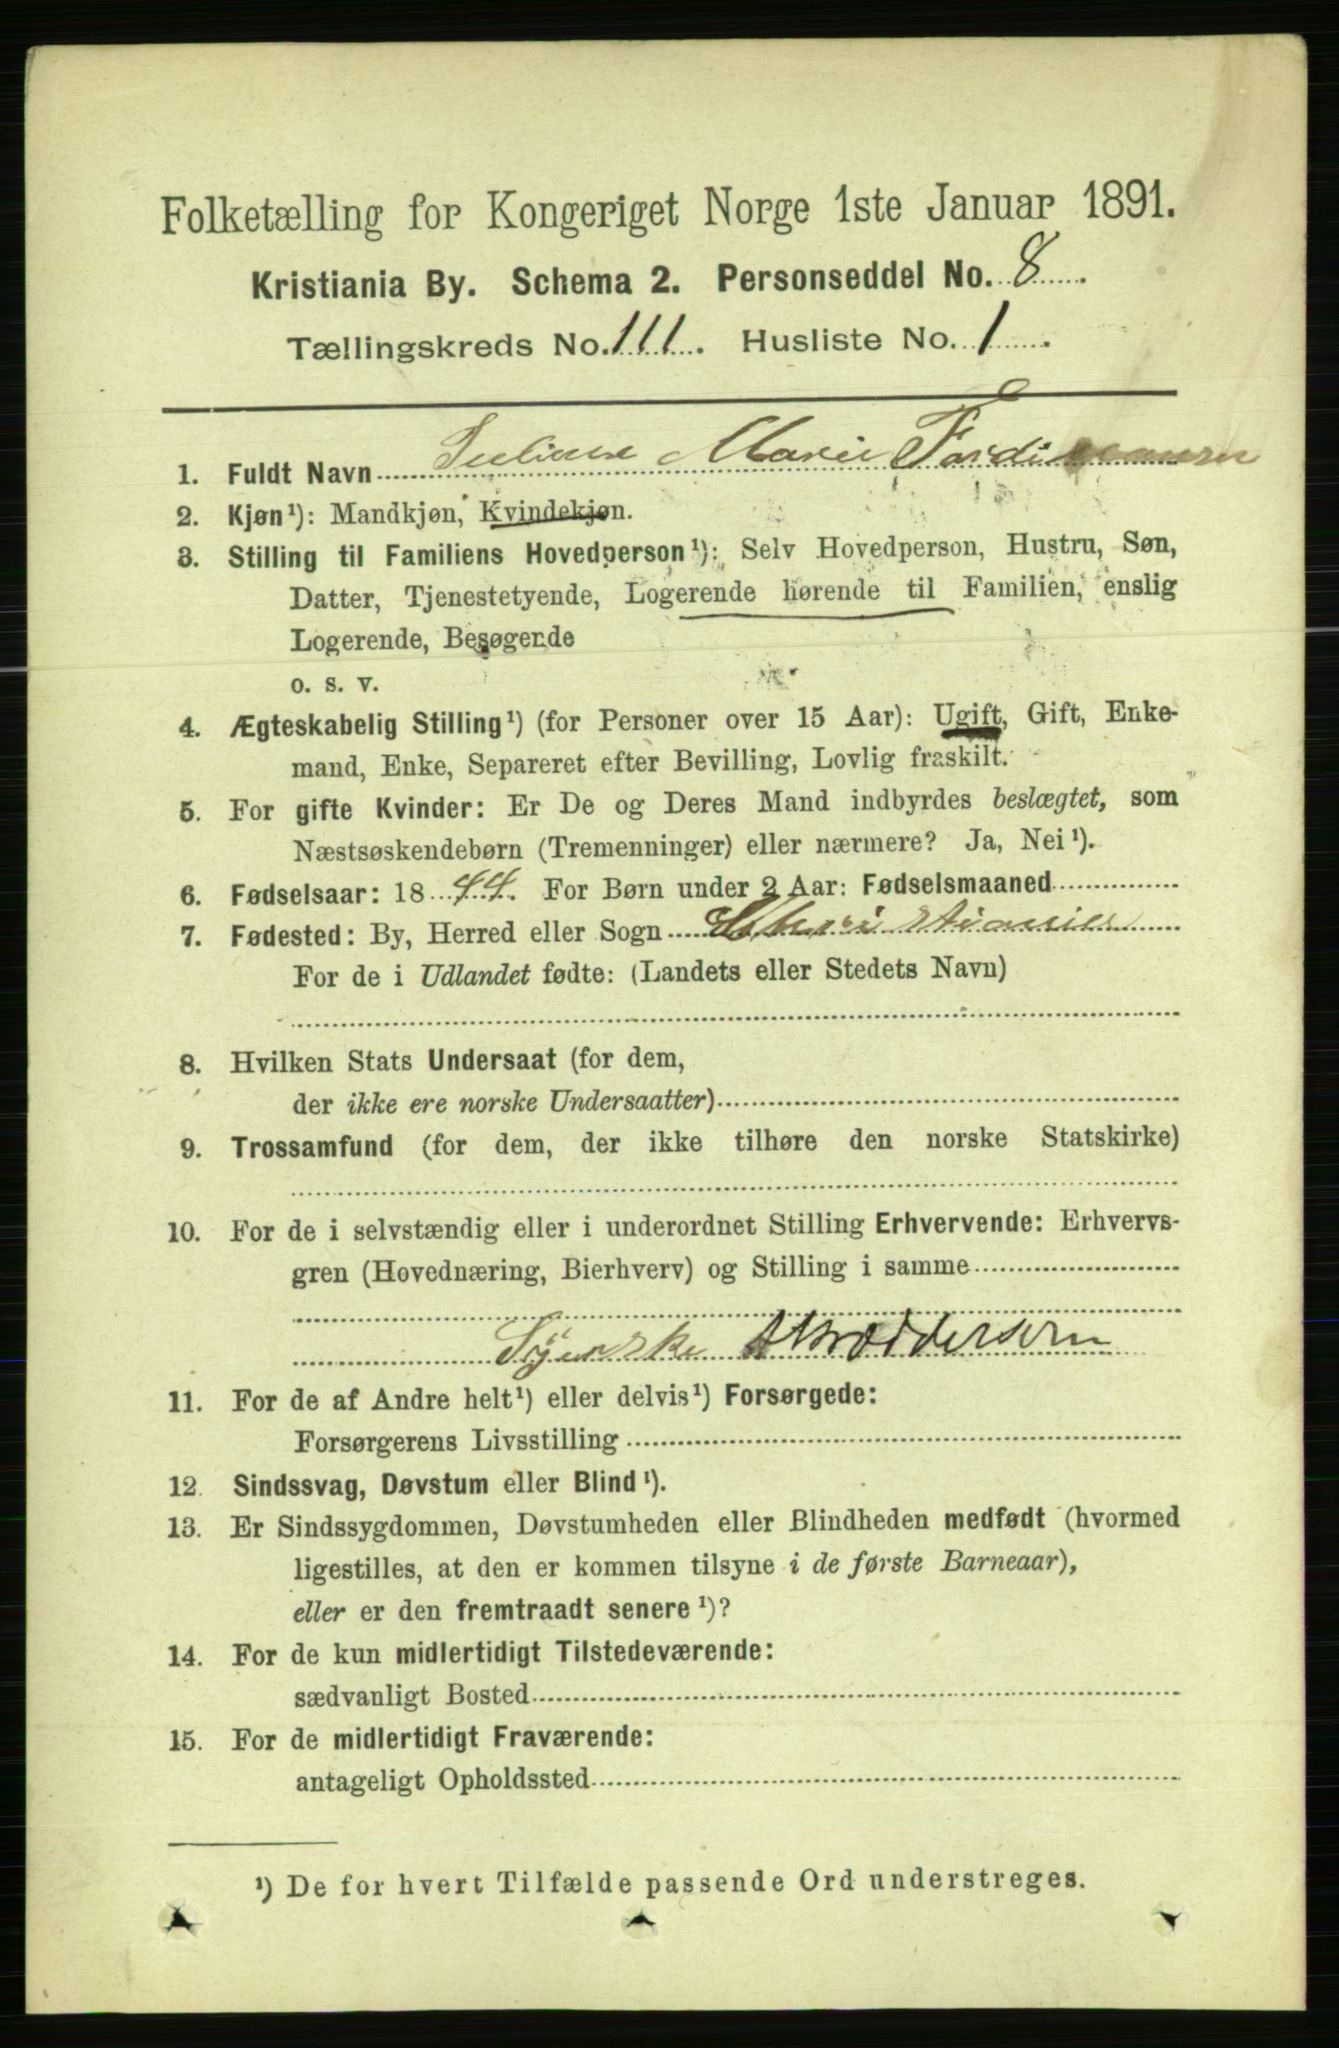 Folketælling for Kongeriget Norge 1ste Januar 1891.
Kristiania By. Schema 2. Personseddel No. 8
Tællingskreds No. 111. Husliste No. 1.
1. Fuldt Navn Juliane Marie
2. Kjøn¹): Mandkjøn, Kvindekjøn.
3. Stilling til Familiens Hovedperson¹): Selv Hovedperson, Hustru, Søn,
Datter, Tjenestetyende, Logerende hørende til Familien, enslig
Logerende, Besøgende
o. s. v.
4. Ægteskabelig Stilling¹) (for Personer over 15 Aar): Ugift, Gift, Enke-
mand, Enke, Separeret efter Bevilling, Lovlig fraskilt.
5. For gifte Kvinder: Er De og Deres Mand indbyrdes beslægtet, som
Næstsøskendebørn (Tremenninger) eller nærmere? Ja, Nei¹).
6. Fødselsaar: 1844. For Børn under 2 Aar: Fødselsmaaned
7. Fødested: By, Herred eller Sogn
For de i Udlandet fødte: (Landets eller Stedets Navn)
8. Hvilken Stats Undersaat (for dem,
der ikke ere norske Undersaatter)
9. Trossamfund (for dem, der ikke tilhøre den norske Statskirke)
10. For de i selvstændig eller i underordnet Stilling Erhvervende: Erhvervs-
gren (Hovednæring, Bierhverv) og Stilling i samme
Syerske Skræddersøm
11. For de af Andre helt¹) eller delvis¹) Forsørgede:
Forsørgerens Livsstilling
12. Sindssvag, Døvstum eller Blind¹).
13. Er Sindssygdommen, Døvstumheden eller Blindheden medfødt (hvormed
ligestilles, at den er kommen tilsyne i de første Barneaar),
eller er den fremtraadt senere¹)?
14. For de kun midlertidigt Tilstedeværende:
sædvanligt Bosted
15. For de midlertidigt Fraværende:
antageligt Opholdssted
¹) De for hvert Tilfælde passende Ord understreges.